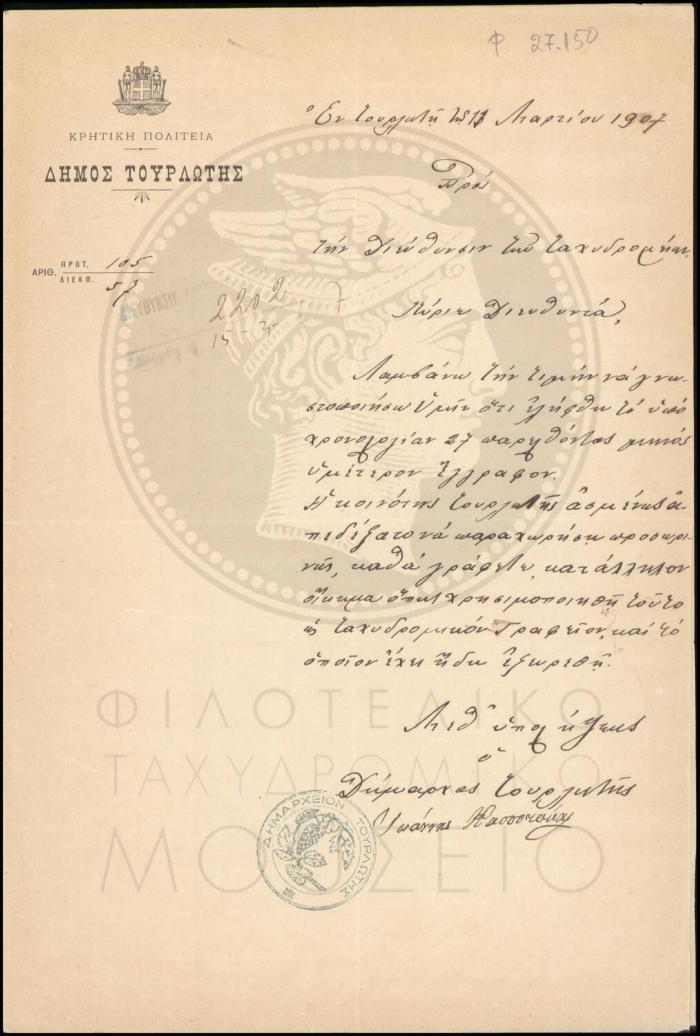 Φ. 27.150
Ἐν Τουρλωτῇ τῇ 13 Μαρτίου 1907
ΚΡΗΤΙΚΗ ΠΟΛΙΤΕΙΑ
ΔΗΜΟΣ ΤΟΥΡΛΩΤΗΣ
Πρὸς
τὴν Διεύθυνσιν τῶν Ταχυδρομείων.
ΑΡΙΘ. ΠΡΩΤ. 105
ΔΙΕΚΠ. 57
2202
15-3-
Κύριε Διευθυντά,
Λαμβάνω τὴν τιμὴν νὰ γνω-
στοποιήσω Ὑμῖν ὅτι ἐλήφθη τὸ ὑπὸ
χρονολογίαν 27 παρελθόντος μηνὸς
ὑμέτερον ἔγγραφον.
Ἡ κοινότης Τουρλωτῆς ἀσμένως ἀ-
πεδέξατο νὰ παραχωρήσῃ προσωρι-
νῶς, καθὰ γράφετε, κατάλληλον
οἴκημα ὅπως χρησιμοποιηθῇ τοῦτο
ὡς Ταχυδρομικὸν Γραφεῖον, καὶ τὸ
ὁποῖον ἔχει ἤδη ἐξευρεθῇ.
Μεθ' ὑπολήψεως
ὁ
Δήμαρχος Τουρλωτῆς
Ἰωάννης
ΔΗΜΑΡΧΕΙΟΝ ΤΟΥΡΛΩΤΗΣ
ΦΙΛΟΤΕΛΙΚΟ
ΤΑΧΥΔΡΟΜΙΚΟ
ΜΟΥΣΕΙΟ